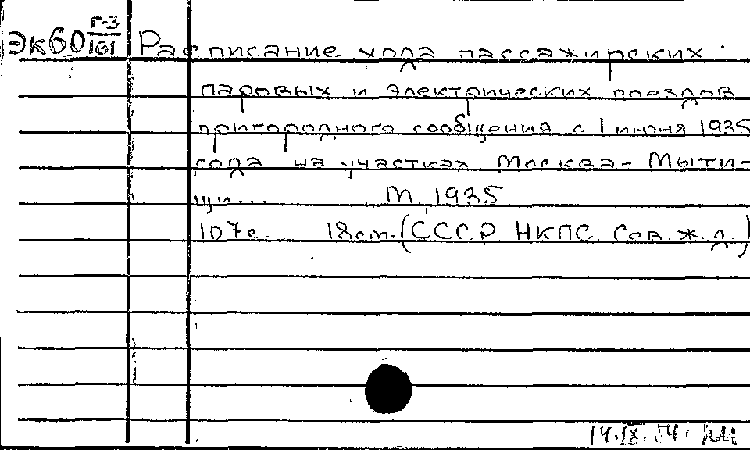 Эк60 Г-3/101 Расписание хода пассажирских
паровых и электрических поездов
пригородного сообщения с 1 июня 1935
года на участках Москва - Мыти-
щи... М, 1935
107 с. 18 см. (СССР НКПС Сев. ж.д.)
14.IX.54.